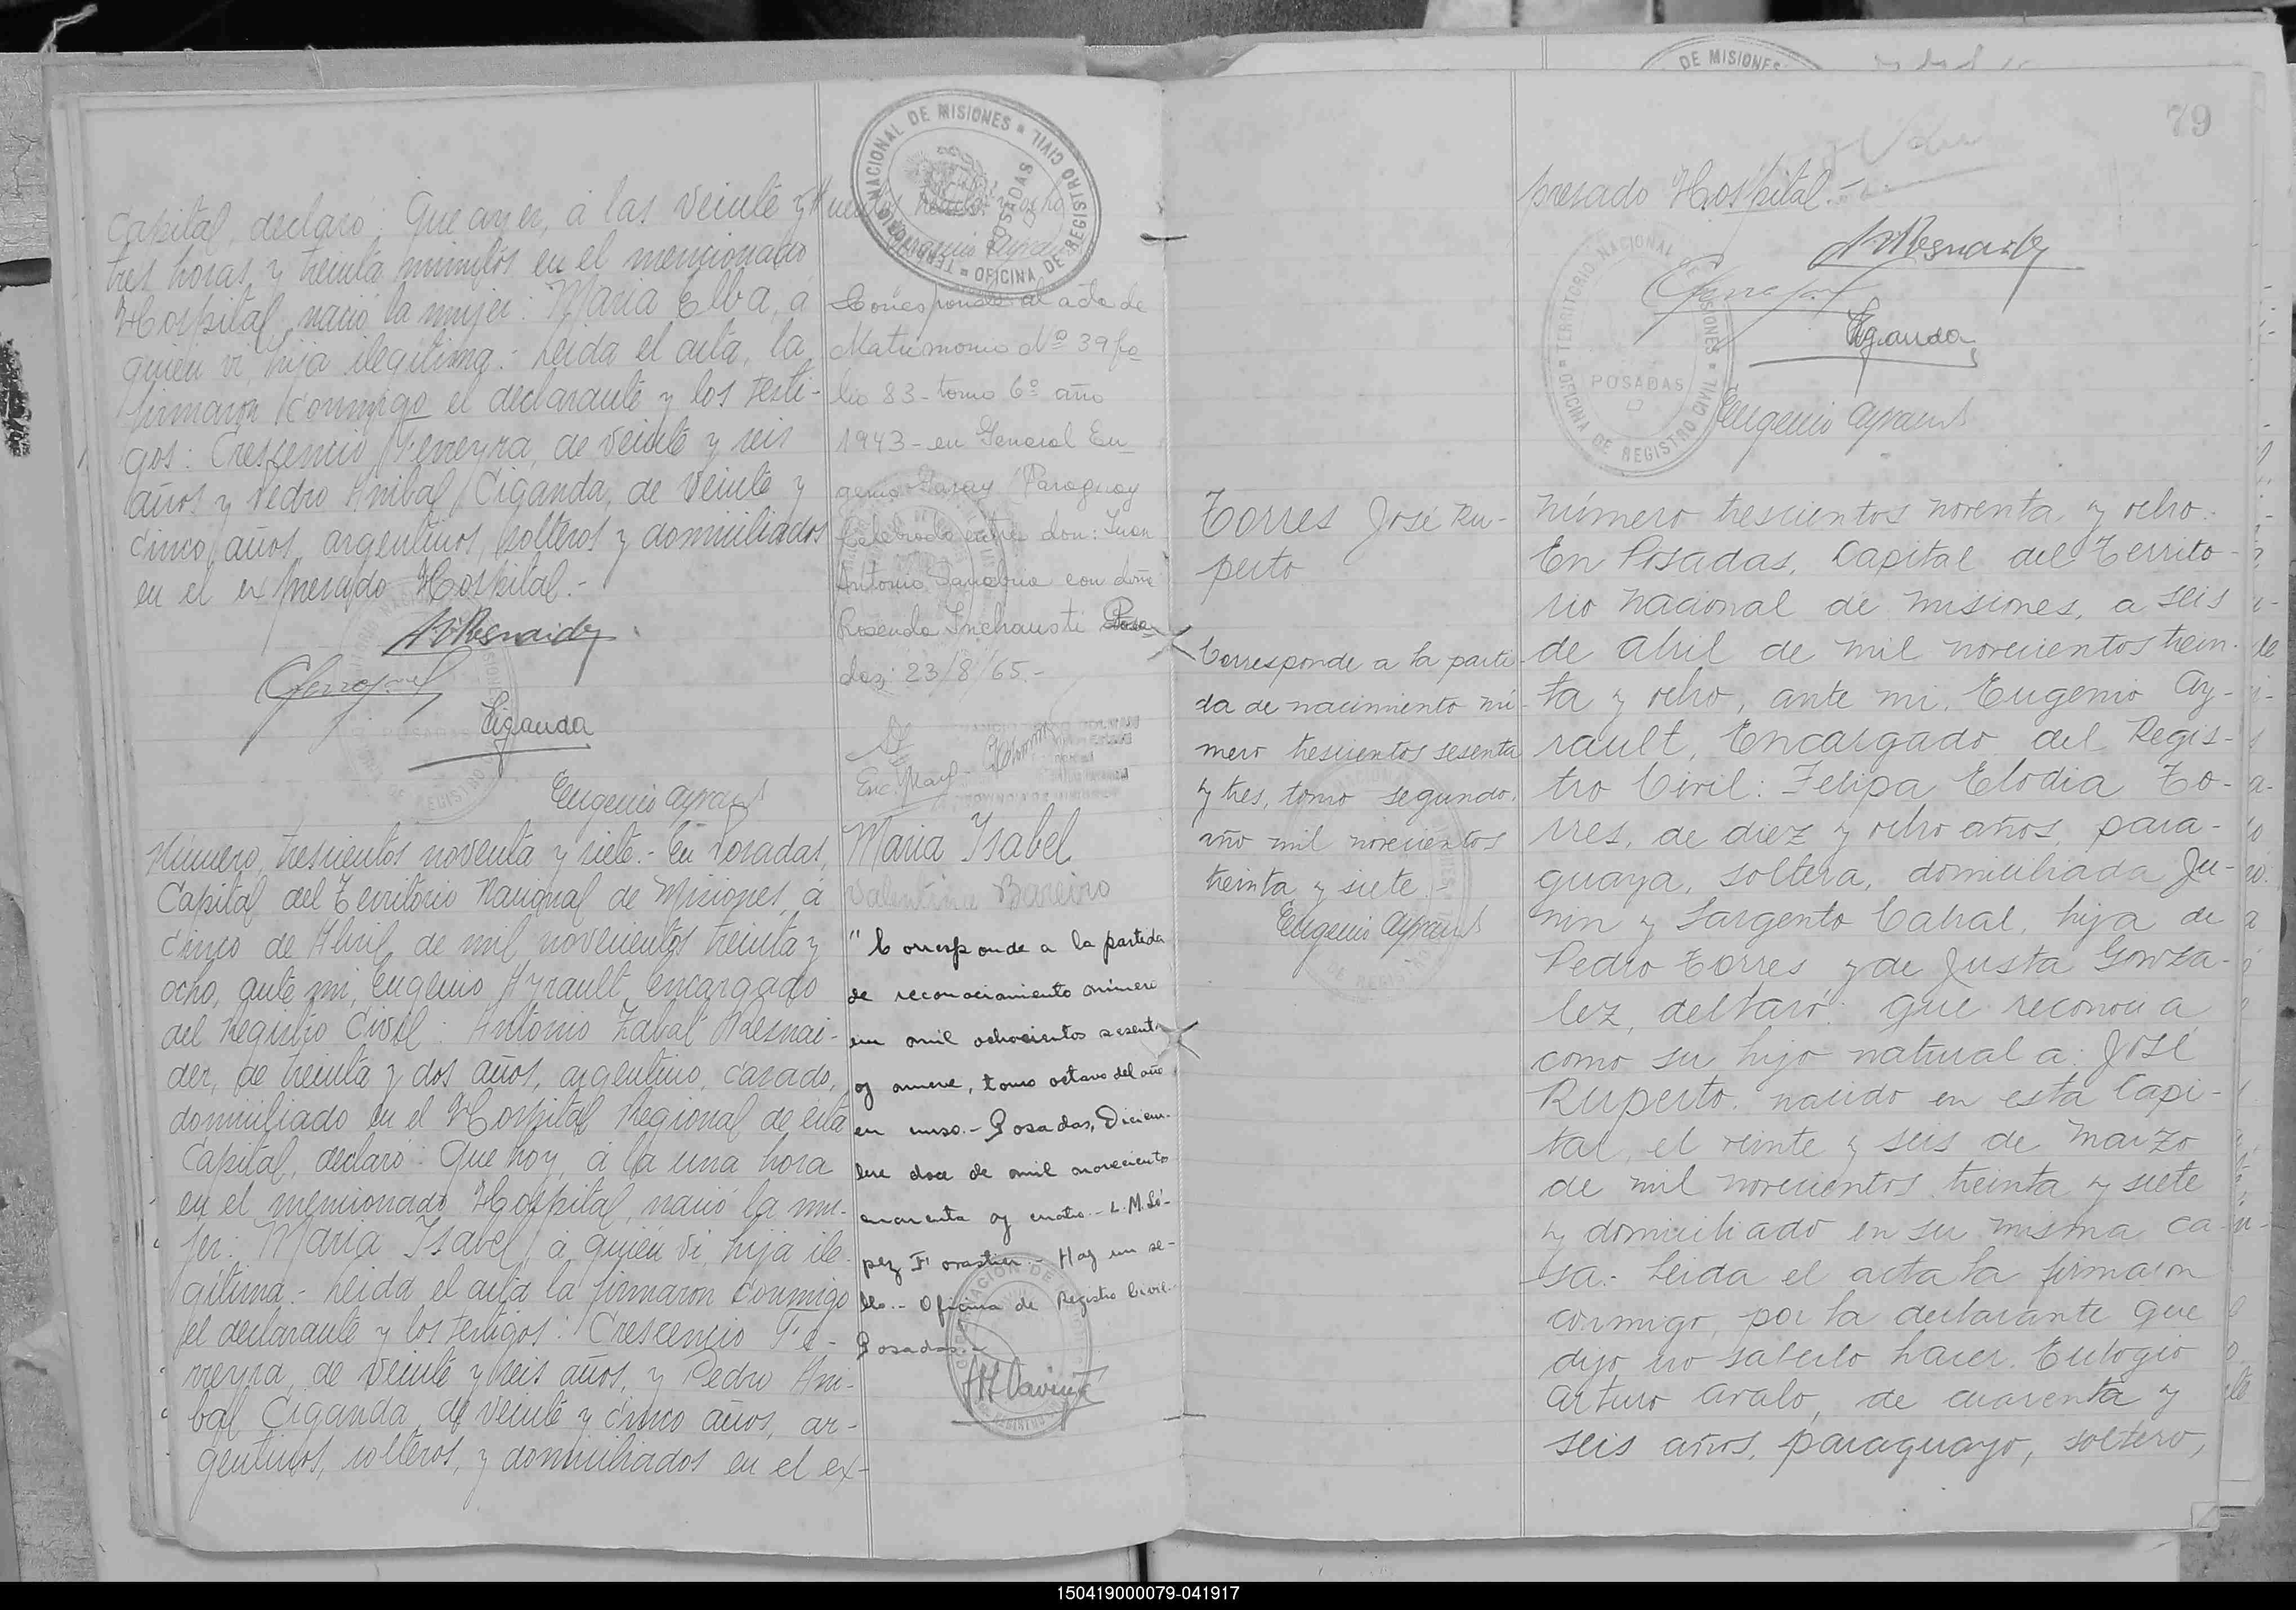 Capital, declaró: Que ayer, á las veinte y
tres horas y treinta minutos en el mencionado
Hospital, nació la mujer: Maria Elba, á
quien vi, hija ilegítima.- Leida el acta, la
firmaron conmigo el declarante y los testi-
gos: Crescencio Ferreyra, de veinte y seis
años y Pedro Anibal Ciganda, de veinte y
cinco años, argentinos, solteros y domiciliados
en el expresado Hospital.-
Ciganda
Eugenio Ayrault
Número, trescientos noventa y siete.- En Posadas,
Capital del Territorio Nacional de Misiones, á
cinco de Abril de mil novecientos treinta y
ocho, ante mi, Eugenio Ayrault, encargado
del Registro Civil: Antonio Zabal Resnai-
der, de treinta y dos años, argentino, casado,
domiciliado en el Hospital Regional de esta
Capital, declaró: Que hoy, á la una hora
en el mencionado Hospital, nació la mu-
jer: Maria Isabel, á quién vi, hija ile-
gítima.- Leida el acta la firmaron conmigo
el declarante y los testigos: Crescencio Fe-
rreyra, de veinte y seis años, y Pedro Aní-
bal Ciganda, de veinte y cinco años, ar-
gentinos, solteros, y domiciliados en el ex-
TERRITORIO NACIONAL DE MISIONES
OFICINA DE REGISTRO CIVIL
POSADAS
Corresponde al acta de
Matrimonio Nº 39 fo
lio 83 - tomo 6º año
1943 - en General Eu
genio Garay Paraguay
Celebrado entre don: Juan
Antonio Sanabria con doña
Rosenda Inchausti Posa
das; 23/8/65.-
Maria Isabel
Valentina Bareiro
"Corresponde a la partida
de reconocimiento número
mil ochocientos sesenta
y nueve, tomo octavo del año
en curso.- Posadas, Diciem-
bre doce de mil novecientos
cuarenta y cuatro.- L. M. Ló-
pez Forastier.- Hay un se-
llo.- Oficina de Registro Civil.-
Posadas.-
79
presado Hospital.-
Ciganda
TERRITORIO NACIONAL DE MISIONES
OFICINA DE REGISTRO CIVIL
POSADAS
Eugenio Ayrault
Torres José Ru-
perto
Corresponde a la parti-
da de nacimiento nú-
mero trescientos sesenta
y tres, tomo segundo,
año mil novecientos
treinta y siete.-
Eugenio Ayrault
Número trescientos noventa y ocho:
En Posadas, Capital del Territo-
rio Nacional de Misiones, a seis
de Abril de mil novecientos trein-
ta y ocho, ante mi, Eugenio Ay-
rault, Encargado del Regis-
tro Civil: Felipa Elodia To-
rres, de diez y ocho años, para-
guaya, soltera, domiciliada Ju-
nin y Sargento Cabral, hija de
Pedro Torres y de Justa Gonza-
lez, declaró: Que reconoce a
como su hijo natural a: José
Ruperto, nacido en esta Capi-
tal, el veinte y seis de Marzo
de mil novecientos treinta y siete
y domiciliado en su misma ca-
sa.- Leida el acta la firmaron
conmigo, por la declarante que
dijo no saberlo hacer, Eulogio
Arturo Avalo, de cuarenta y
seis años, paraguayo, soltero,
150419000079-041917